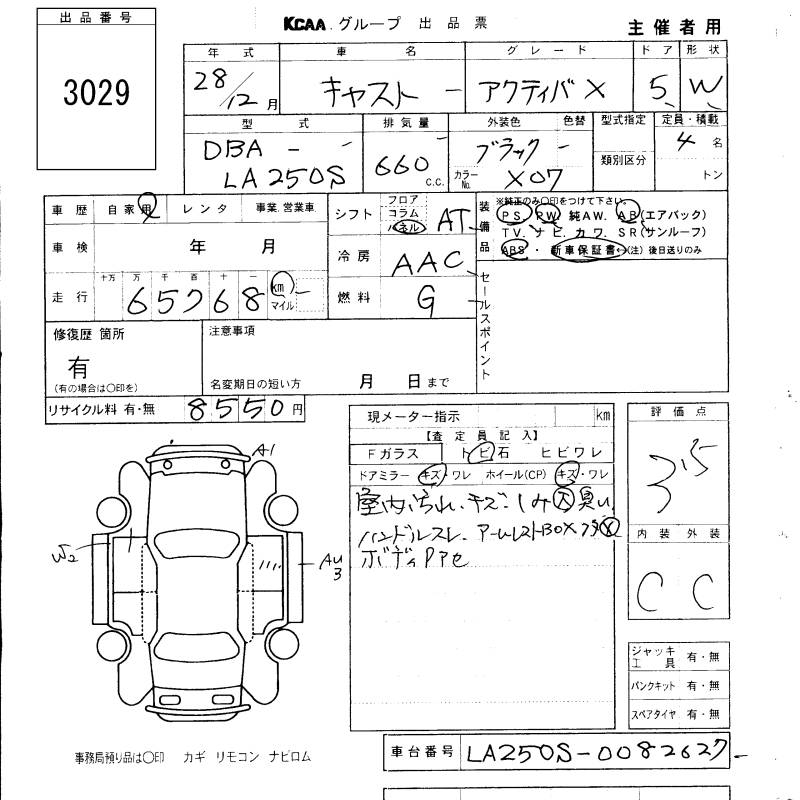 出品番号
3029
KCAA グループ 出品票
主催者用
年式 車名 グレード ドア 形状
28/12月 キャスト アクティバ X 5 W
型式 排気量 外装色 色替 型式指定 定員・積載
DBA - - 660 c.c. ブラック 類別区分 4 名
LA250S カラーNo. X07 トン
車歴 自家用 レンタ 事業.営業車
シフト フロア コラム パネル AT
装備品 ※純正のみ○印をつけて下さい。
PS. PW. 純AW. AB(エアバック)
TV. ナビ. カワ. SR(サンルーフ)
ABS ・ 新車保証書 ↔(注) 後日送りのみ
車検 年 月
冷房 AAC
走行 十万 万 千 百 十 一
65768 km マイル
燃料 G
セールスポイント
修復歴 箇所
有
(有の場合は○印を)
注意事項
名変期日の短い方 月 日まで
リサイクル料 有・無 8550円
現メーター指示 km
【査定員記入】
Fガラス トビ石 ヒビワレ
ドアミラー キズ・ワレ ホイール(CP) キズ・ワレ
室内汚れ.キズ.シミ 大 臭い
ハンドルスレ.アームレストBOXフタ
評価点
3.5
内装 外装
C C
A1
W2
AU3
ジャッキ工具 有・無
パンクキット 有・無
スペアタイヤ 有・無
事務局預り品は○印 カギ リモコン ナビロム
車台番号 LA250S-0082627